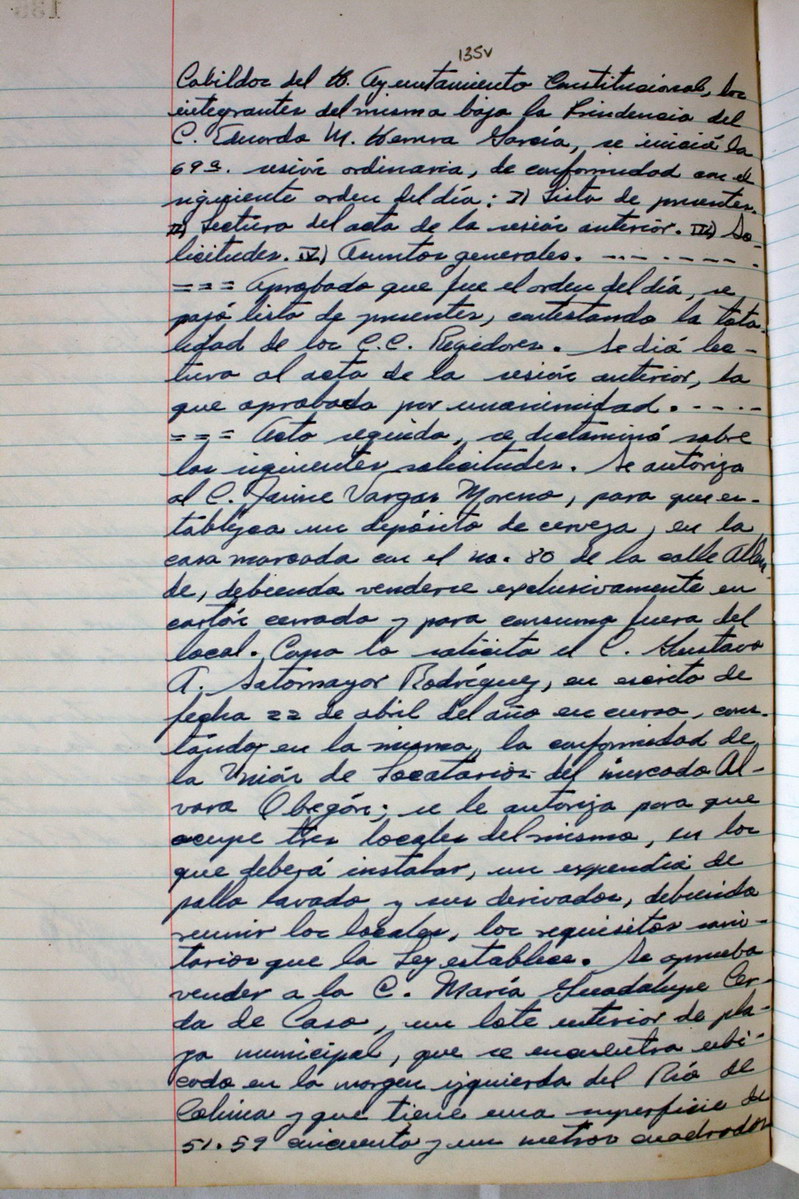 135v
Cabildos del H. Ayuntamiento Constitucional, los
integrantes del mismo bajo la Presidencia del
C. Eduardo M. Herrera García, se inició la
69a. sesión ordinaria, de conformidad con el
siguiente orden del día: I) Lista de presentes.
II) Lectura del acta de la sesión anterior. III) So-
licitudes. IV) Asuntos generales. -- - - - - - -
=== Aprobado que fue el orden del día, se
pasó lista de presentes, contestando la tota-
lidad de los C.C. Regidores. Se dió lec-
tura al acta de la sesión anterior, la
que aprobada por unanimidad. - - - -
=== Acto seguido, se dictaminó sobre
las siguientes solicitudes. Se autoriza
al C. Jaime Vargas Moreno, para que es-
tablezca un depósito de cerveza, en la
casa marcada con el no. 80 de la calle Allen-
de, debiendo venderse exclusivamente en
cartón cerrado y para consumo fuera del
local. Como lo solicita el C. Gustavo
A. Sotomayor Rodríguez, en escrito de
fecha 22 de abril del año en curso, cons-
tando en la misma, la conformidad de
la Unión de Locatarios del mercado Al-
varo Obregón; se le autoriza para que
ocupe tres locales del mismo, en los
que deberá instalar, un expendio de
pollo lavado y sus derivados, debiendo
reunir los locales, los requisitos sani-
tarios que la Ley establece. Se aprueba
vender a la C. María Guadalupe Cer-
da de Caso, un lote interior de pla-
za municipal, que se encuentra ubi-
cado en la margen izquierda del Río de
Colima y que tiene una superficie de
51.59 cincuenta y un metros cuadrados